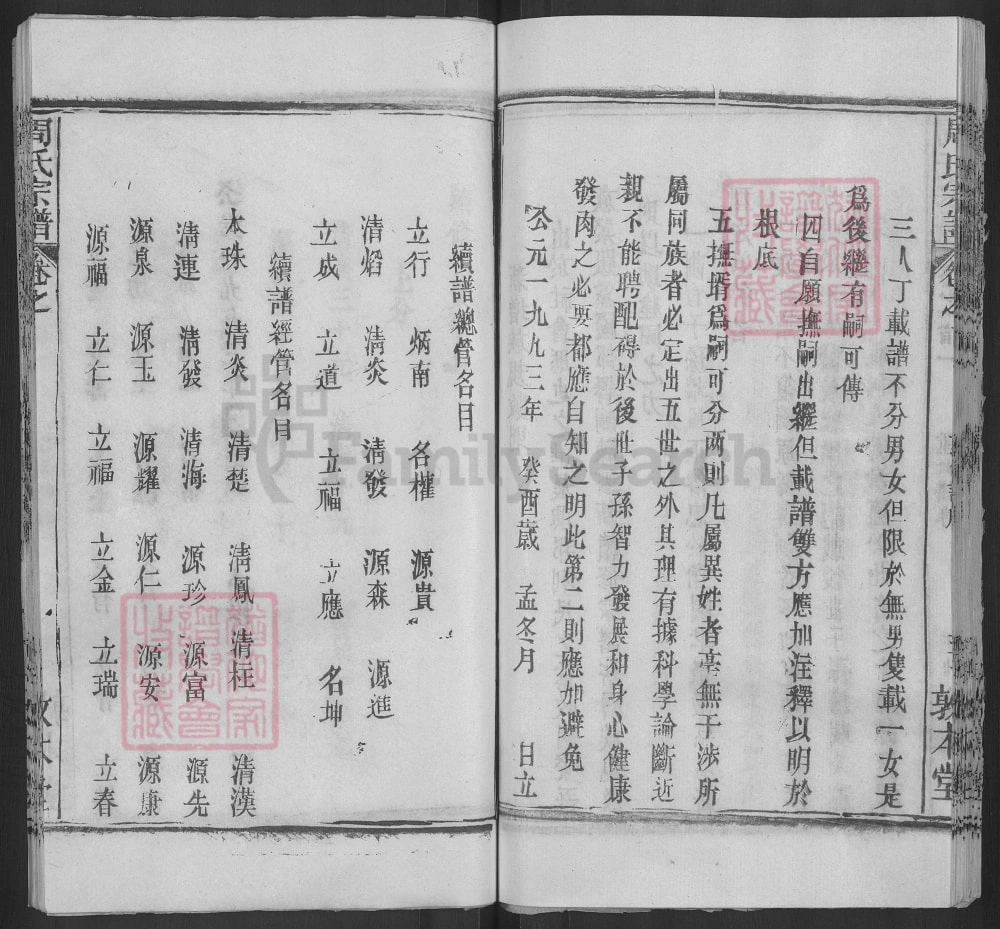 三人丁載譜不分男女但限於無男隻載一女是
爲後繼有嗣可傳
四自願撫嗣出繼但載譜雙方應加注釋以明於
根底
五撫壻爲嗣可分两則凡屬異姓者毫無干涉所
屬同族者必定出五世之外其理有據科學論斷近
親不能聘配碍於後世子孫智力發展和身心健康
發肉之必要都應自知之明此第二則應加避免
公元一九九三年 癸酉歲 孟冬月 日立
敦本堂
續譜總管名目
立行 炳南 名權 源貴
清熖 清炎 清發 源森 源進
立成 立道 立福 立應 名坤
續譜經管名目
本珠 清炎 清楚 清鳳 清柱 清漢
清連 清發 清海 源珍 源富 源先
源泉 源玉 源耀 源仁 源安 源康
源福 立仁 立福 立金 立瑞 立春
周氏宗譜 卷之
敦本堂
FamilySearch